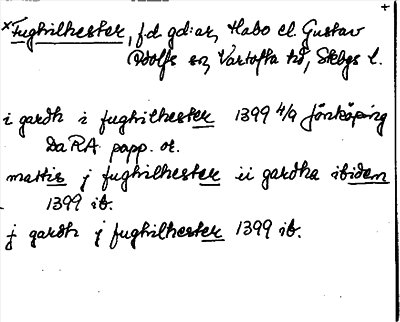 +
× Fughilhester, f.d. gd:ar, Habo el. Gustav
Adolfs sn, Vartofta hd, Skbgs l.
i gardh i fughilhester 1399 4/9 Jönköping
DaRA papp. or.
mattis j fughilhester ii gardha ibidem
1399 ib.
j gardh j fughilhester 1399 ib.